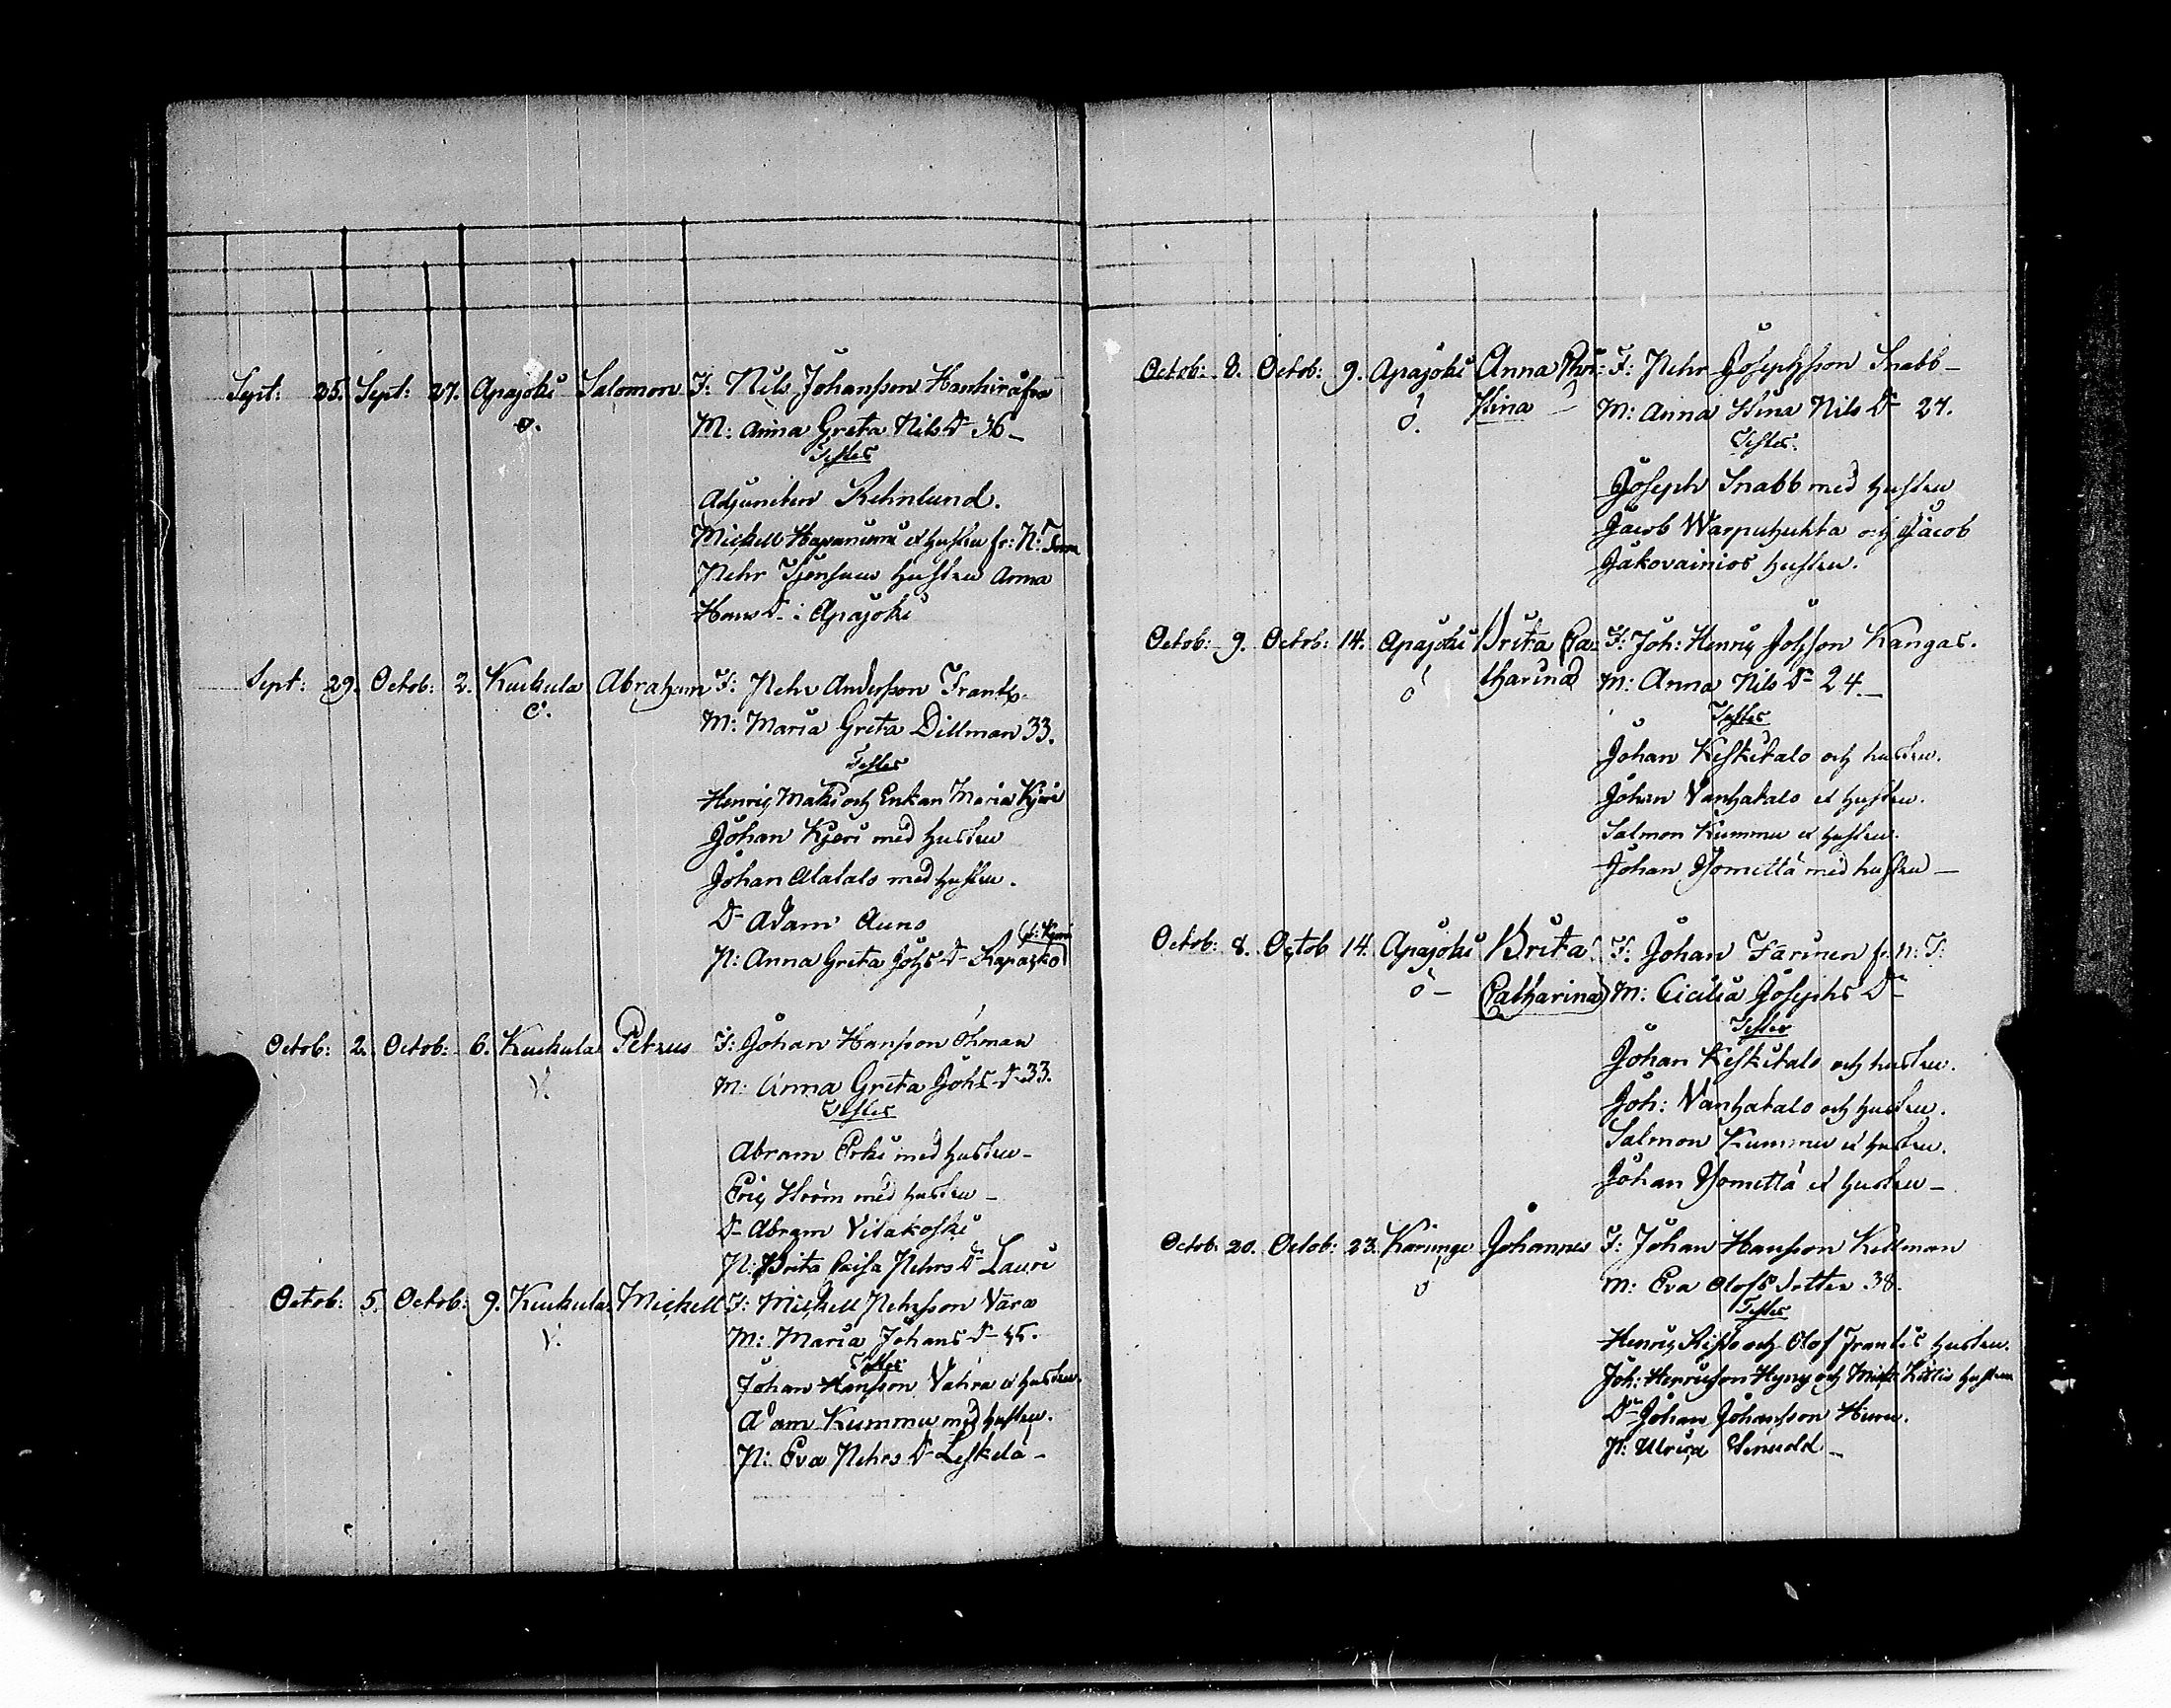 Sept: 25. Sept: 27. Apajoki Salomon F: Nils Johansson
ö. M: Anna Greta Nils Dr 36 –
Testes
Adjuncten Rehnlund.
Michell et hustru fr: N: Torne
Pehr hustru Anna
Hans Dr i Apajoki
Sept: 29. Octob: 2. Kuckula Abraham F: Pehr Andersson Frantz
ö. M: Maria Greta Dillman 33.
Testes
Henric Matki och Enkan Maria Kjeri
Johan Kjeri med hustru
Johan Alatalo med hustru.
Dr Adam Auno
P: Anna Greta Johs Dr Kapasko
Octob: 2. Octob: 6. Kuckula Petrus F: Johan Hansson Öhman
V. M: Anna Greta Johs Dr 33.
Testes
Abram Erki med hustru –
Eric Ström med hustru –
Dr Abram Vitakoski
P: Brita Caisa Pehrs Dr Lauri
Octob: 5. Octob: 9. Kuckula Michell F: Michell Pehrsson Vara
V. M: Maria Johans Dr 45.
Testes
Johan Hansson Vahra et hustru.
Adam Kummu med hustru.
P: Eva Pehrs Dr Leskelä –
Octob: 8. Octob: 9. Apajoki Anna Chri- F: Pehr Josephsson Snabb –
ö. stina M: Anna Stina Nils Dr 27.
Testes.
Joseph Snabb med hustru
Jacob Warpuhuhta och Jacob
Jakovainios hustru.
Octob: 9. Octob: 14. Apajoki Brita Ca- F: Joh: Henric Johsson Kangas.
ö tharina M: Anna Nils Dr 24. –
Testes
Johan Keskitalo och hustru.
Johan Vanhatalo et hustru.
Salmon Kummu et hustru.
Johan Yomettä med hustru –
Octob: 8. Octob 14. Apajoki Brita F. Johan Farinen fr. N: T:
ö – Catharina M: Cicilia Josephs Dr
Testes
Johan Keskitalo och hustru.
Joh: Vanhatalo och hustru.
Salmon Kummu et hustru.
Johan Yomettä et hustru –
Octob: 20. Octob: 23. Karunge Johannes F: Johan Hansson Kellman
ö M: Eva Olofs dotter 38.
Testes
Henric och Olof Frantis hustru.
Joh: Henricsson Hyny och Mich: hustru
Dr Johan Johansson
P: Ulrica